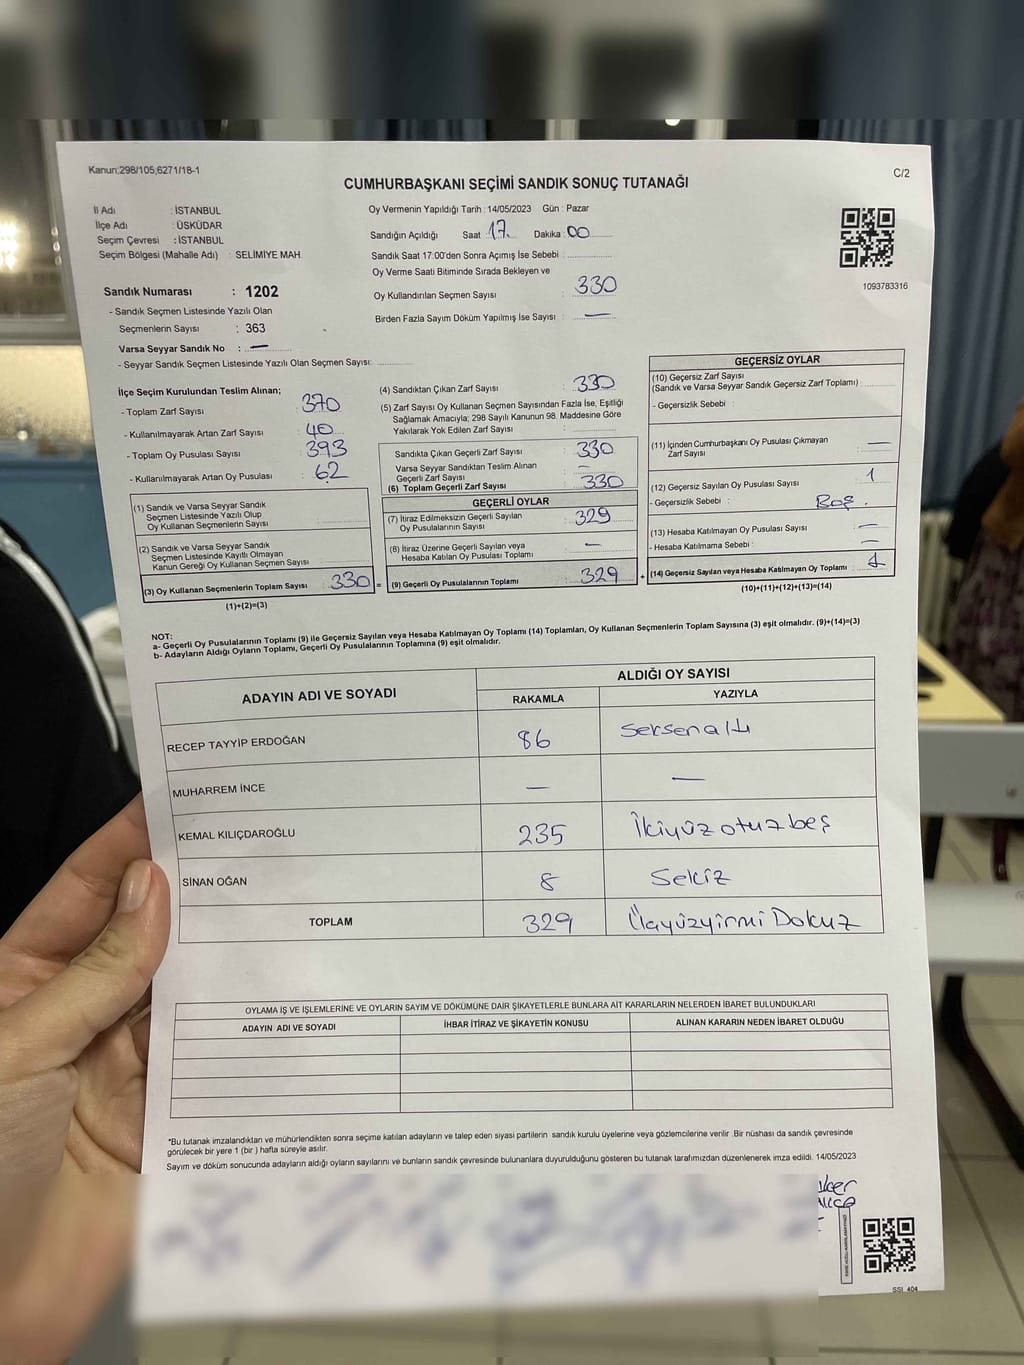 Kanun;298/105,6271/18-1
C/2
CUMHURBAŞKANI SEÇİMİ SANDIK SONUÇ TUTANAĞI
İl Adı : İSTANBUL
İlçe Adı : ÜSKÜDAR
Seçim Çevresi : İSTANBUL
Seçim Bölgesi (Mahalle Adı) : SELİMİYE MAH.
Sandık Numarası : 1202
- Sandık Seçmen Listesinde Yazılı Olan
Seçmenlerin Sayısı : 363
Varsa Seyyar Sandık No : —
- Seyyar Sandık Seçmen Listesinde Yazılı Olan Seçmen Sayısı:
Oy Vermenin Yapıldığı Tarih : 14/05/2023 Gün : Pazar
Sandığın Açıldığı Saat 17. Dakika : 00
Sandık Saat 17:00'den Sonra Açımış İse Sebebi :
Oy Verme Saati Bitiminde Sırada Bekleyen ve
Oy Kullandırılan Seçmen Sayısı : 330
Birden Fazla Sayım Döküm Yapılmış İse Sayısı : —
1093783316
İlçe Seçim Kurulundan Teslim Alınan;
- Toplam Zarf Sayısı : 370
- Kullanılmayarak Artan Zarf Sayısı : 40
- Toplam Oy Pusulası Sayısı : 393
- Kullanılmayarak Artan Oy Pusulası : 62
(1) Sandık ve Varsa Seyyar Sandık
Seçmen Listesinde Yazılı Olup
Oy Kullanan Seçmenlerin Sayısı :
(2) Sandık ve Varsa Seyyar Sandık
Seçmen Listesinde Kayıtlı Olmayan
Kanun Gereği Oy Kullanan Seçmen Sayısı :
(3) Oy Kullanan Seçmenlerin Toplam Sayısı : 330 =
(1)+(2)=(3)
(4) Sandıktan Çıkan Zarf Sayısı : 330
(5) Zarf Sayısı Oy Kullanan Seçmen Sayısından Fazla İse, Eşitliği
Sağlamak Amacıyla; 298 Sayılı Kanunun 98. Maddesine Göre
Yakılarak Yok Edilen Zarf Sayısı :
Sandıkta Çıkan Geçerli Zarf Sayısı : 330
Varsa Seyyar Sandıktan Teslim Alınan
Geçerli Zarf Sayısı : —
(6) Toplam Geçerli Zarf Sayısı : 330
GEÇERLİ OYLAR
(7) İtiraz Edilmeksizin Geçerli Sayılan
Oy Pusulalarının Sayısı : 329
(8) İtiraz Üzerine Geçerli Sayılan veya
Hesaba Katılan Oy Pusulası Toplamı : —
(9) Geçerli Oy Pusulalarının Toplamı : 329 +
GEÇERSİZ OYLAR
(10) Geçersiz Zarf Sayısı
(Sandık ve Varsa Seyyar Sandık Geçersiz Zarf Toplamı) :
- Geçersizlik Sebebi :
(11) İçinden Cumhurbaşkanı Oy Pusulası Çıkmayan
Zarf Sayısı : —
(12) Geçersiz Sayılan Oy Pusulası Sayısı : 1
- Geçersizlik Sebebi : Boş.
(13) Hesaba Katılmayan Oy Pusulası Sayısı : —
- Hesaba Katılmama Sebebi : —
(14) Geçersiz Sayılan veya Hesaba Katılmayan Oy Toplamı : 1
(10)+(11)+(12)+(13)=(14)
NOT:
a- Geçerli Oy Pusulalarının Toplamı (9) ile Geçersiz Sayılan veya Hesaba Katılmayan Oy Toplamı (14) Toplamları, Oy Kullanan Seçmenlerin Toplam Sayısına (3) eşit olmalıdır. (9)+(14)=(3)
b- Adayların Aldığı Oyların Toplamı, Geçerli Oy Pusulalarının Toplamına (9) eşit olmalıdır.
ADAYIN ADI VE SOYADI
ALDIĞI OY SAYISI
RAKAMLA YAZIYLA
RECEP TAYYIP ERDOĞAN 86 Seksenaltı
MUHARREM İNCE — —
KEMAL KILIÇDAROĞLU 235 İkiyüzotuzbeş
SİNAN OĞAN 8 Sekiz
TOPLAM 329 Üçyüzyirmi Dokuz
OYLAMA İŞ VE İŞLEMLERİNE VE OYLARIN SAYIM VE DÖKÜMÜNE DAİR ŞİKAYETLERLE BUNLARA AİT KARARLARIN NELERDEN İBARET BULUNDUKLARI
ADAYIN ADI VE SOYADI İHBAR İTİRAZ VE ŞİKAYETİN KONUSU ALINAN KARARIN NEDEN İBARET OLDUĞU
*Bu tutanak imzalandıktan ve mühürlendikten sonra seçime katılan adayların ve talep eden siyasi partilerin sandık kurulu üyelerine veya gözlemcilerine verilir. Bir nüshası da sandık çevresinde
görülecek bir yere 1 (bir ) hafta süreyle asılır.
Sayım ve döküm sonucunda adayların aldığı oyların sayılarını ve bunların sandık çevresinde bulunanlara duyurulduğunu gösteren bu tutanak tarafımızdan düzenlenerek imza edildi. 14/05/2023
SSI_404